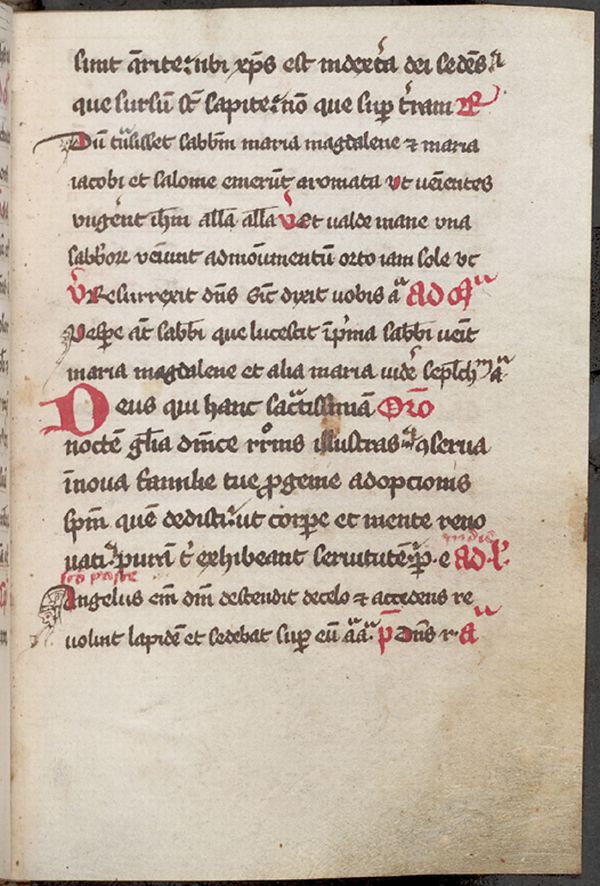 sunt q̄rite: ubi xp̄s est in dext̾a dei sedēs a
que sursū st̄ sapite: nō que sup̱ t̾ram R̸
Dū tͣsisset sabbm̄ maria magdalene ⁊ maria
iacobi et salome emerūt aromata ut ueīentes
ungēnt ih̄m all̄a all̄a V̾ Et ualde mane una
sabb̾oꝝ ueīunt ad mōumentū orto iam sole ut
V̾ Resurrexit dn̄s Sīc dixit uobis aͣ ad mͣ
Vesꝑe aūt sabb̄i que lucescit īpͥma sabb̄i ueīt
maria magdalene et alia maria uid̾e seplch̾ᵐ aͣ
Deus qui hanc sacͣtissimā Or̄o
noctē gl̄ia dn̄ice rͬōnis illustras: ꝯserua
ī noua familie tue ꝓgenie adopcionis
sp̄m quē dedisti: ut corꝑe et mente reno
uati: purā t̾ exhibeant seruitutē: ꝑ. e ad. l̾.
Angelus em̄ dn̄i descendit de celo ⁊ accedens re
uoluit lapidē et sedebat suꝑ eū aͣaͣ. p̄ Dn̄s r. aͣ